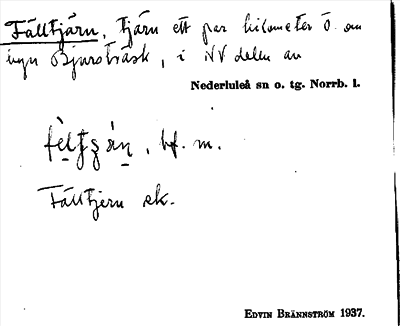 Fälltjärn, tjärn ett par kilometer ö. om
byn Bjursträsk, i NV delen av
Nederluleå sn o. tg. Norrb. l.
bf. m.
Fälltjern ek.
EDVIN BRÄNNSTRÖM 1937.